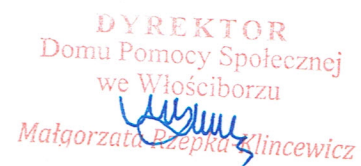 DYREKTOR
Domu Pomocy Społecznej
we Włościborzu
Małgorzata Rzepka-Klincewicz